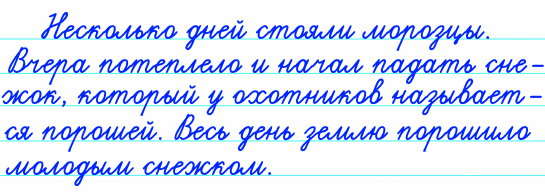 Несколько дней стояли морозцы.
Вчера потеплело и начал падать сне-
жок, который у охотников называет-
ся порошей. Весь день землю порошило
молодым снежком.